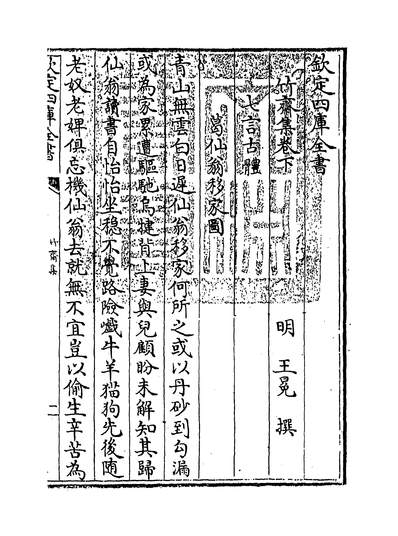 欽定四庫全書
竹齋集卷下
明 王冕 撰
七言古體
葛仙翁移家圖
青山無雲白日遲仙翁移家何所之或以丹砂到勾漏
或為家累遭驅馳烏犍背上妻與兒顧盼未解知其歸
仙翁讀書自怡怡坐穩不覺路險巇牛羊猫狗先後隨
老奴老婢俱忘機仙翁去就無不宜豈以偷生辛苦為
欽定四庫全書
竹齋集
二